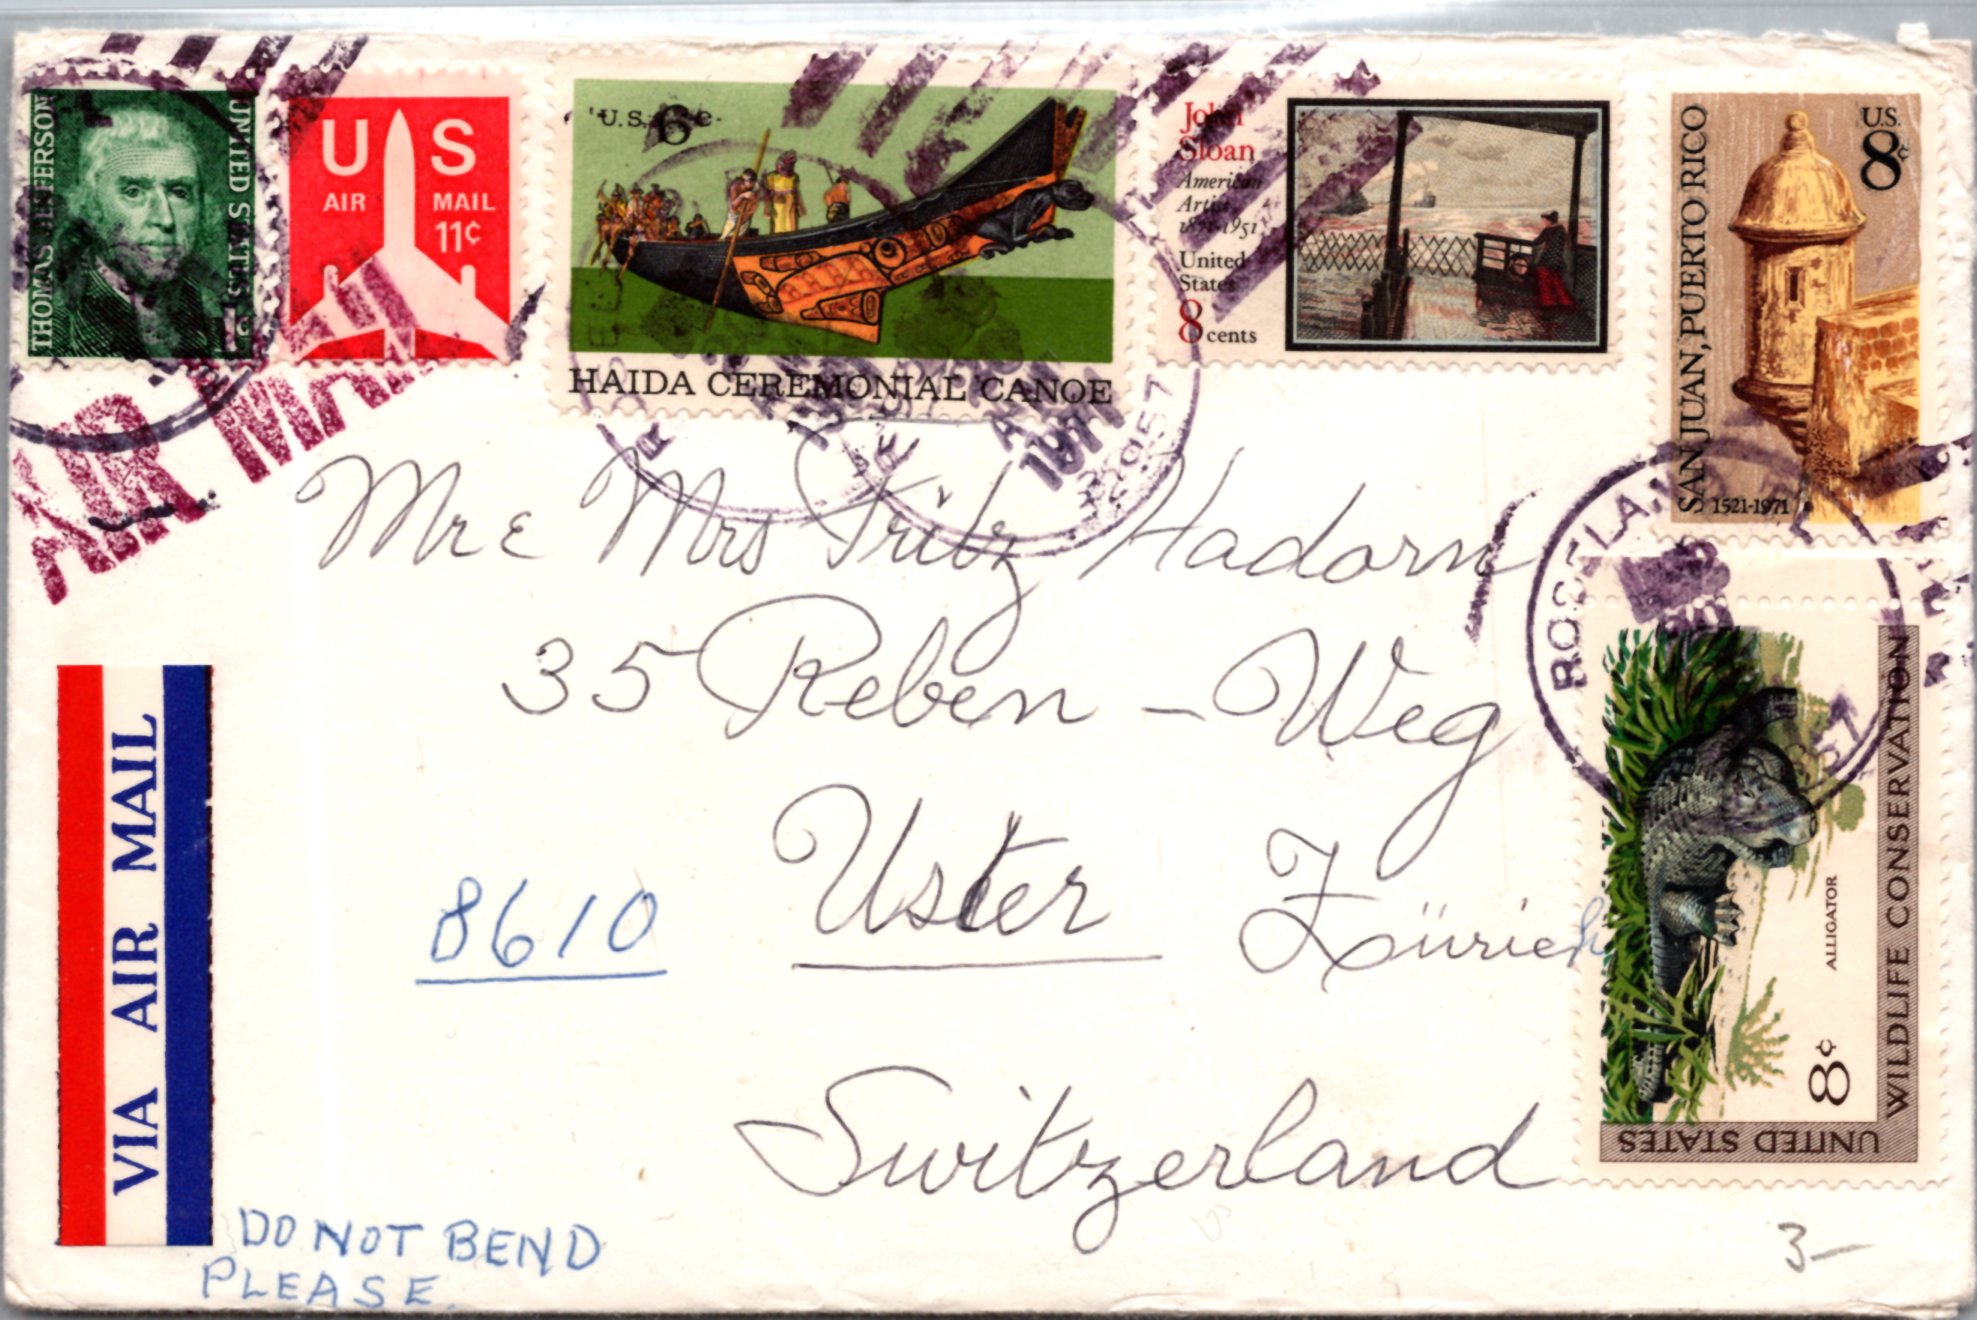 THOMAS JEFFERSON
UNITED STATES
US
AIR MAIL
11¢
U.S. 6c
HAIDA CEREMONIAL CANOE
John
Sloan
American
Artist
1871-1951
United
States
8 cents
U.S.
8c
SAN JUAN, PUERTO RICO
1521-1971
AIR MAIL
1971
20957
ROSELAND
Mr & Mrs Fritz Hadorn
35 Reben-Weg
8610 Uster Zürich
Switzerland
WILDLIFE CONSERVATION
ALLIGATOR
8¢
UNITED STATES
VIA AIR MAIL
DO NOT BEND
PLEASE.
3—